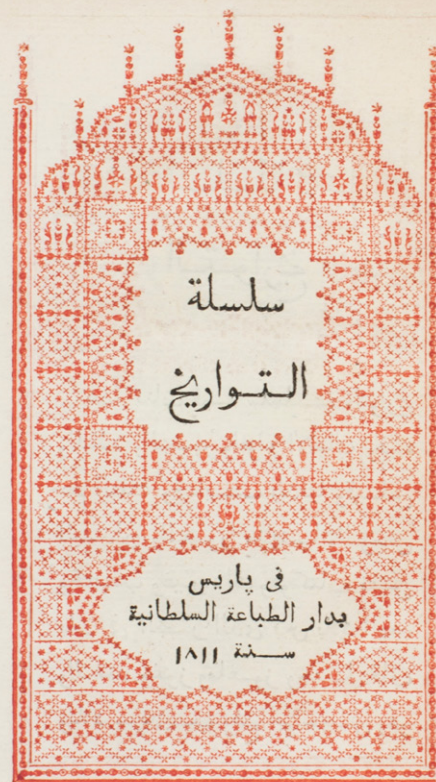 سلسلة
التـواريخ
فى پاريس
بدار الطباعة السلطانية
سـنة ١٨١١